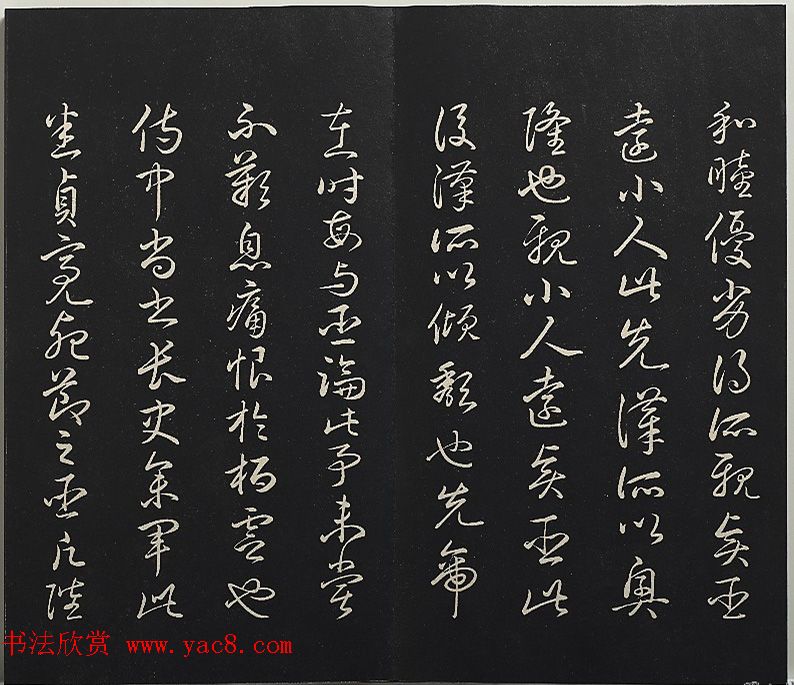 和睦優劣得所親賢臣
遠小人此先漢所以興
隆也親小人遠賢臣此
後漢所以傾頹也先帝
在時每與臣論此事未嘗
不歎息痛恨於桓靈也
侍中尚書長史參軍此
悉貞亮死節之臣願陛
书法欣赏 www.yac8.com